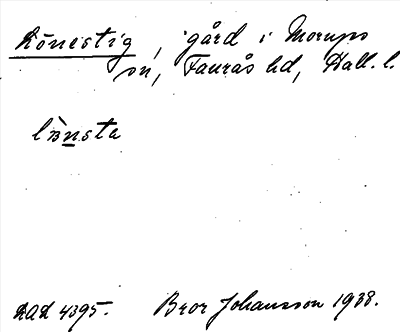 Lönestig, gård i Morups
sn, Faurås hd, Hall. l.
lɜ̀nsta
DAL 4395. Bror Johansson 1938.